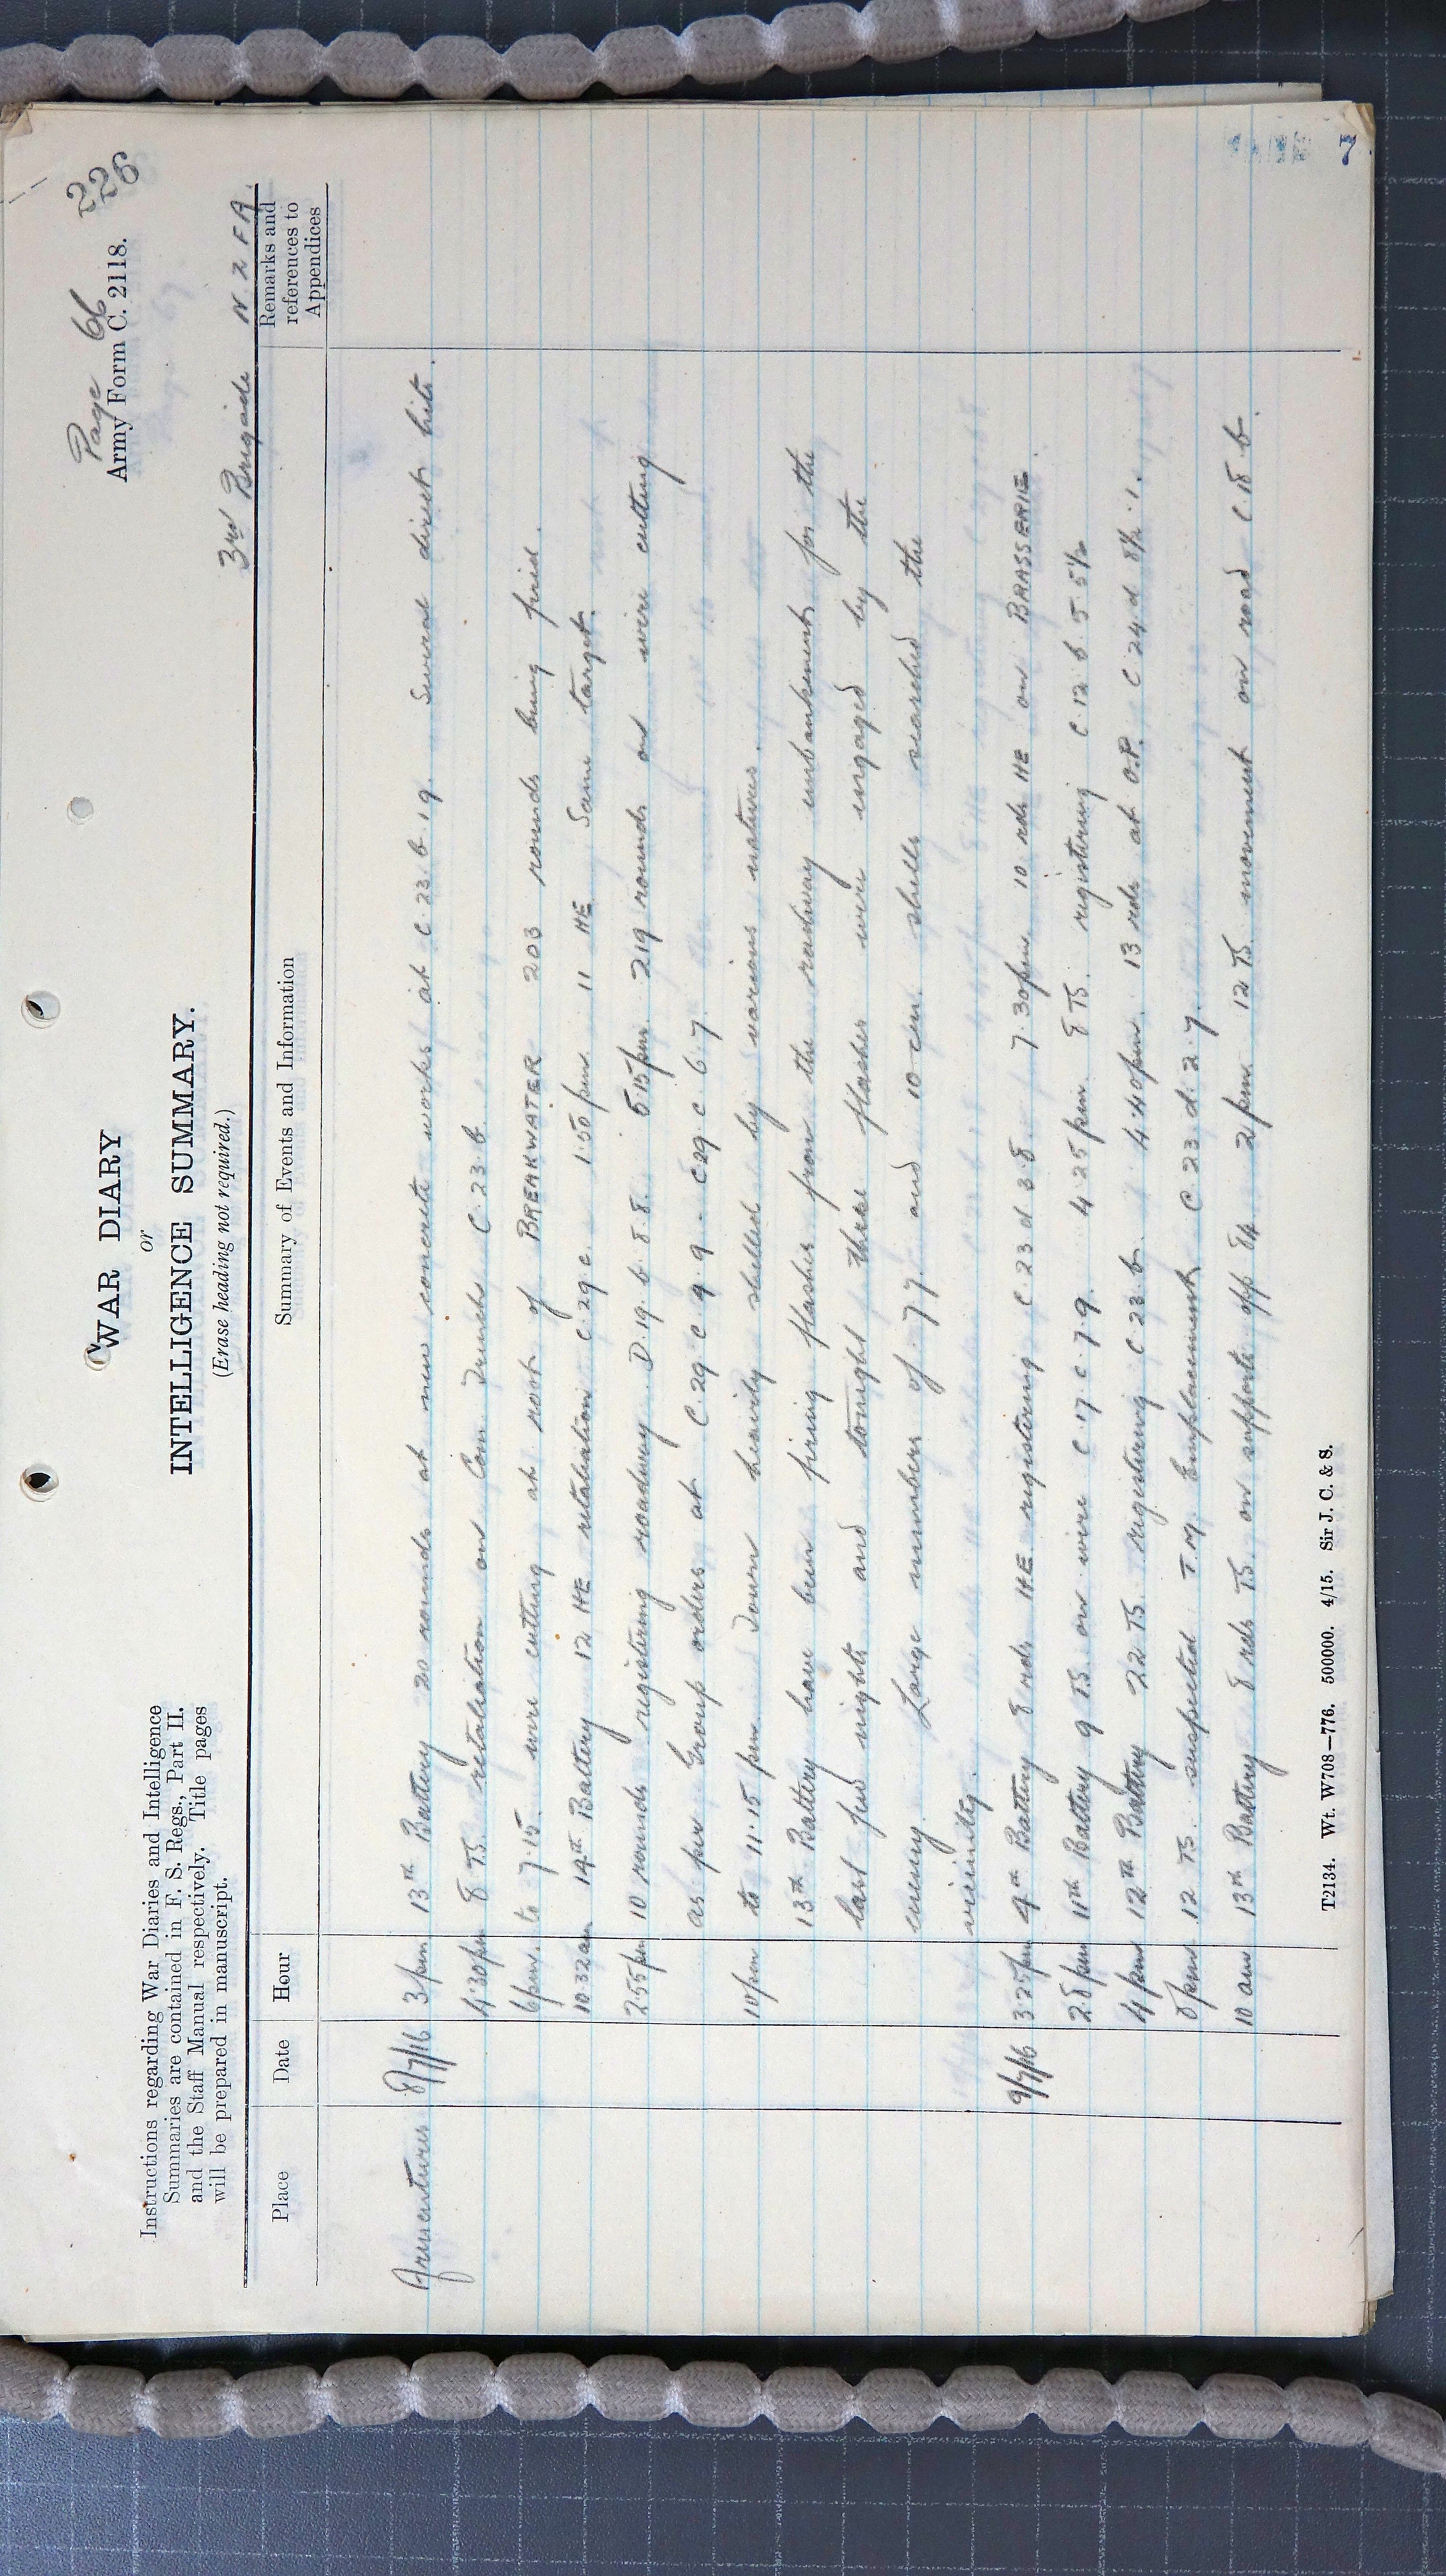 Page 66
226
Army Form C. 2118.
WAR DIARY
or
INTELLIGENCE SUMMARY.
(Erase heading not required.)
Instructions regarding War Diaries and Intelligence
Summaries are contained in F. S. Regs., Part II.
and the Staff Manual respectively. Title pages
will be prepared in manuscript.
3rd Brigade N Z F A.
Place Date Hour Summary of Events and Information Remarks and references to Appendices
Armentieres 8/7/16 3pm 13th Battery 20 rounds at new concrete works at C.23.b.19. Several direct hits.
4.30pm 8 TS. retaliation on Com. Trenches C.23.b.
6pm. to 7.15. wire cutting at root of BREAKWATER 203 rounds being fired.
10.32am 14th Battery 12 HE retaliation C.29.c. 1.50 pm. 11 HE Same target.
2.55pm 10 rounds registering roadway D.19.b.8.8. 5.15pm. 219 rounds on wire cutting
as per Group orders at C.29.c.9.9 - C.29.c.6.7.
10pm to 11.15 pm. Town heavily shelled by various natures.
13th Battery have been firing flashes from the railway embankment for the
last few nights and tonight these flashes were engaged by the
enemy. Large numbers of 77. and 10 cm. shells searched the
vicinity.
9/7/16 3.25pm 4th Battery 8 rds HE registering C.23.d.3.8. 7.30pm. 10 rds HE on BRASSERIE.
2.8pm 11th Battery 9 TS. on wire C.17.c.7.9. 4.25pm. 8 TS. registering C.12.b.5.5½
4pm 12th Battery 22 TS. registering C.23.b. 4.40pm. 13 rds at O.P. C.24.d.8½.1.
8pm. 12 TS. suspected T.M. Emplacement C.23.d.2.7.
10am 13th Battery 8 rds TS. on supports opp 84. 2pm 12 TS. movement on road C.18.b.
T2134. Wt. W708—776. 500000. 4/15. Sir J. C. & S.
7